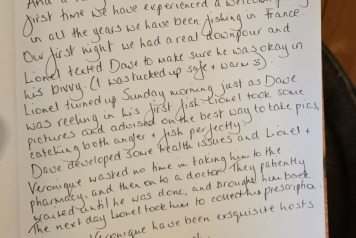 And a
first time we have experienced a welcome
in all the years we have been fishing in France.
Our first night we had a real downpour and
Lionel texted Dave to make sure he was okay in
his bivvy. (I was tucked up safe & warm)
Lionel turned up Sunday morning just as Dave
was reeling in his first fish. Lionel took some
pictures and advised on the best way to take pics,
catching both angler & fish perfectly.
Dave developed some health issues and Lionel &
Veronique wasted no time in taking him to the
pharmacy, and then onto a doctor. They patiently
waited until he was done, and brought him back.
The next day Lionel took him to collect his prescription.
Veronique have been exsquisite hosts